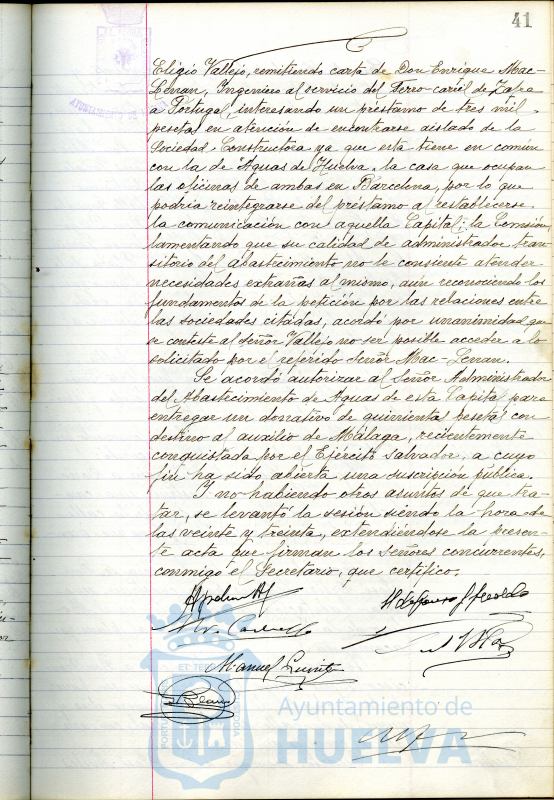 41
Eligio Vallejo, remitiendo carta de Don Enrique Mac-
Lenan, Ingeniero al servicio del Ferro-carril de Zafra
a Portugal, interesando un préstamo de tres mil
pesetas en atención de encontrarse aislado de la
Sociedad Constructora ya que esta tiene en común
con la de Aguas de Huelva, la casa que ocupan
las oficinas de ambas en Barcelona, por lo que
podría reintegrarse del préstamo al restablecerse
la comunicación con aquella Capital; la Comisión,
lamentando que su calidad de administrador tran-
sitorio del abastecimiento no le consiente atender
necesidades extrañas al mismo, aún reconociendo los
fundamentos de la petición por las relaciones entre
las sociedades citadas, acordó por unanimidad que
se conteste al señor Vallejo no ser posible acceder a lo
solicitado por el referido Señor Mac-Lenan.
Se acordó autorizar al Señor Administrador
del Abastecimiento de Aguas de esta Capital para
entregar un donativo de quinientas pesetas con
destino al auxilio de Málaga, recientemente
conquistada por el Ejército Salvador, a cuyo
fin ha sido abierta una suscripción pública.
Y no habiendo otros asuntos de que tra-
tar, se levantó la sesión siendo la hora de
las veinte y treinta, extendiéndose la presen-
te acta que firman los señores concurrentes,
conmigo el Secretario, que certifico.
Manuel
Ayuntamiento de
HUELVA